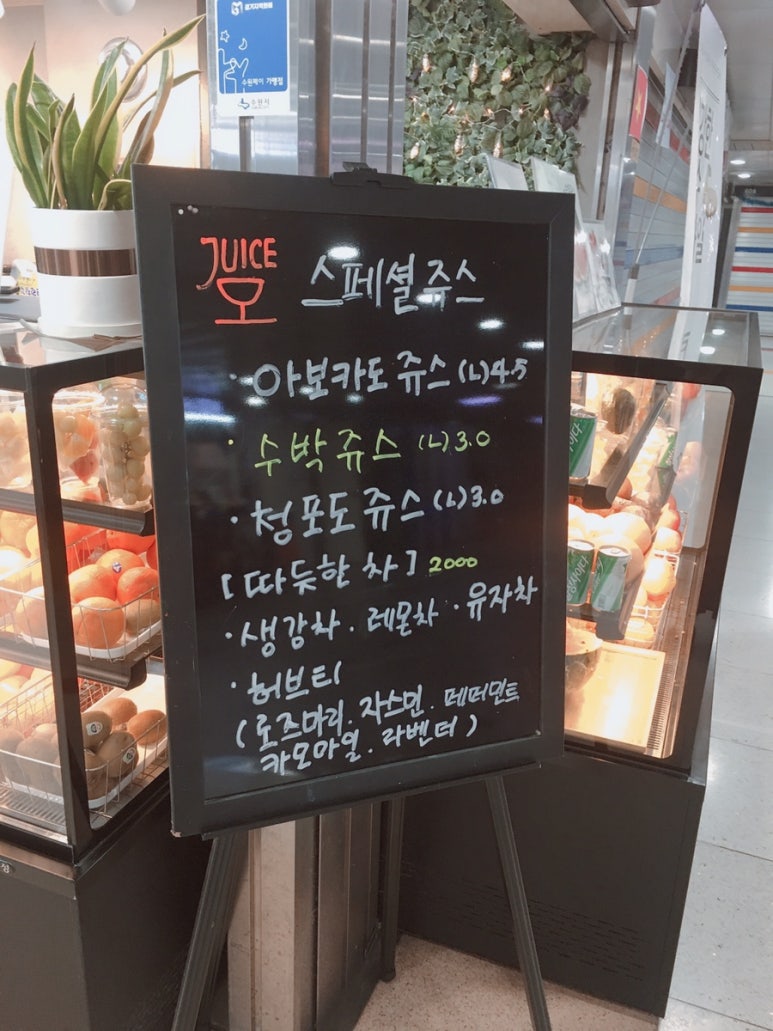 경기지역화폐
수원페이 가맹점
수원시
JUICE
모
스페셜쥬스
· 아보카도쥬스 (L)4.5
· 수박쥬스 (L)3.0
· 청포도쥬스 (L)3.0
[따뜻한 차] 2000
· 생강차 · 레몬차 · 유자차
· 허브티
(로즈마리 · 자스민 · 페퍼민트
카모마일 · 라벤더)